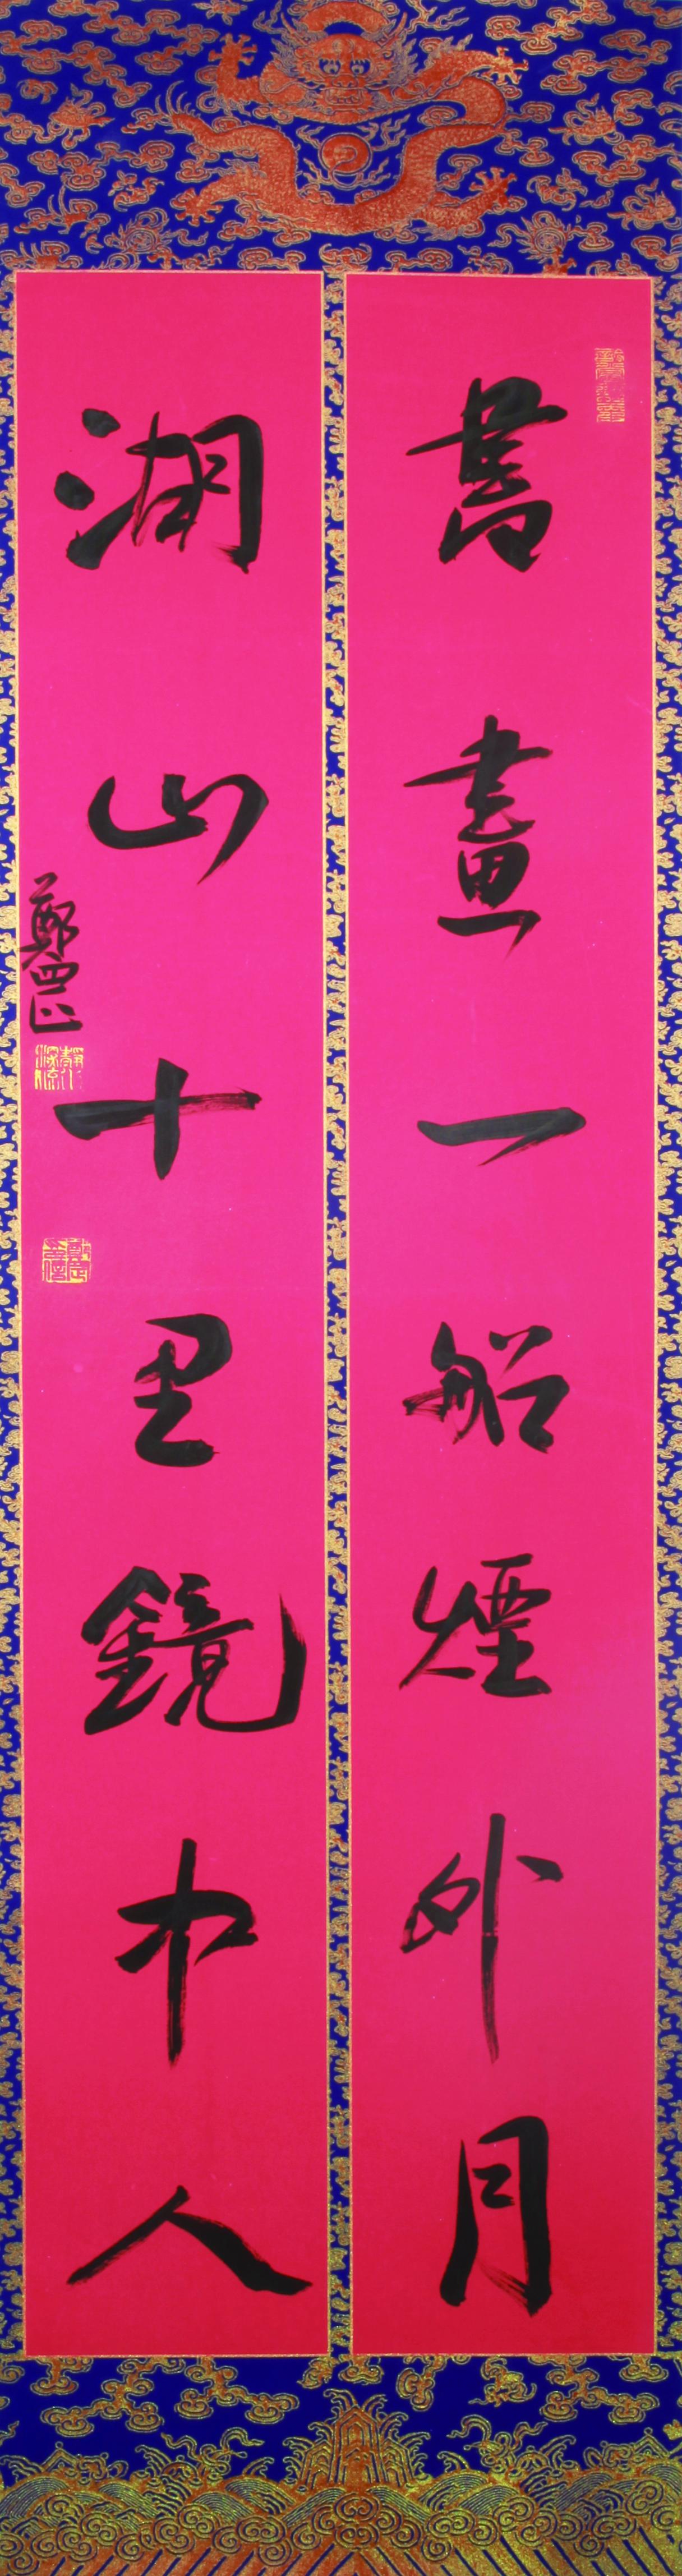 書畫一船煙外月
湖山十里鏡中人